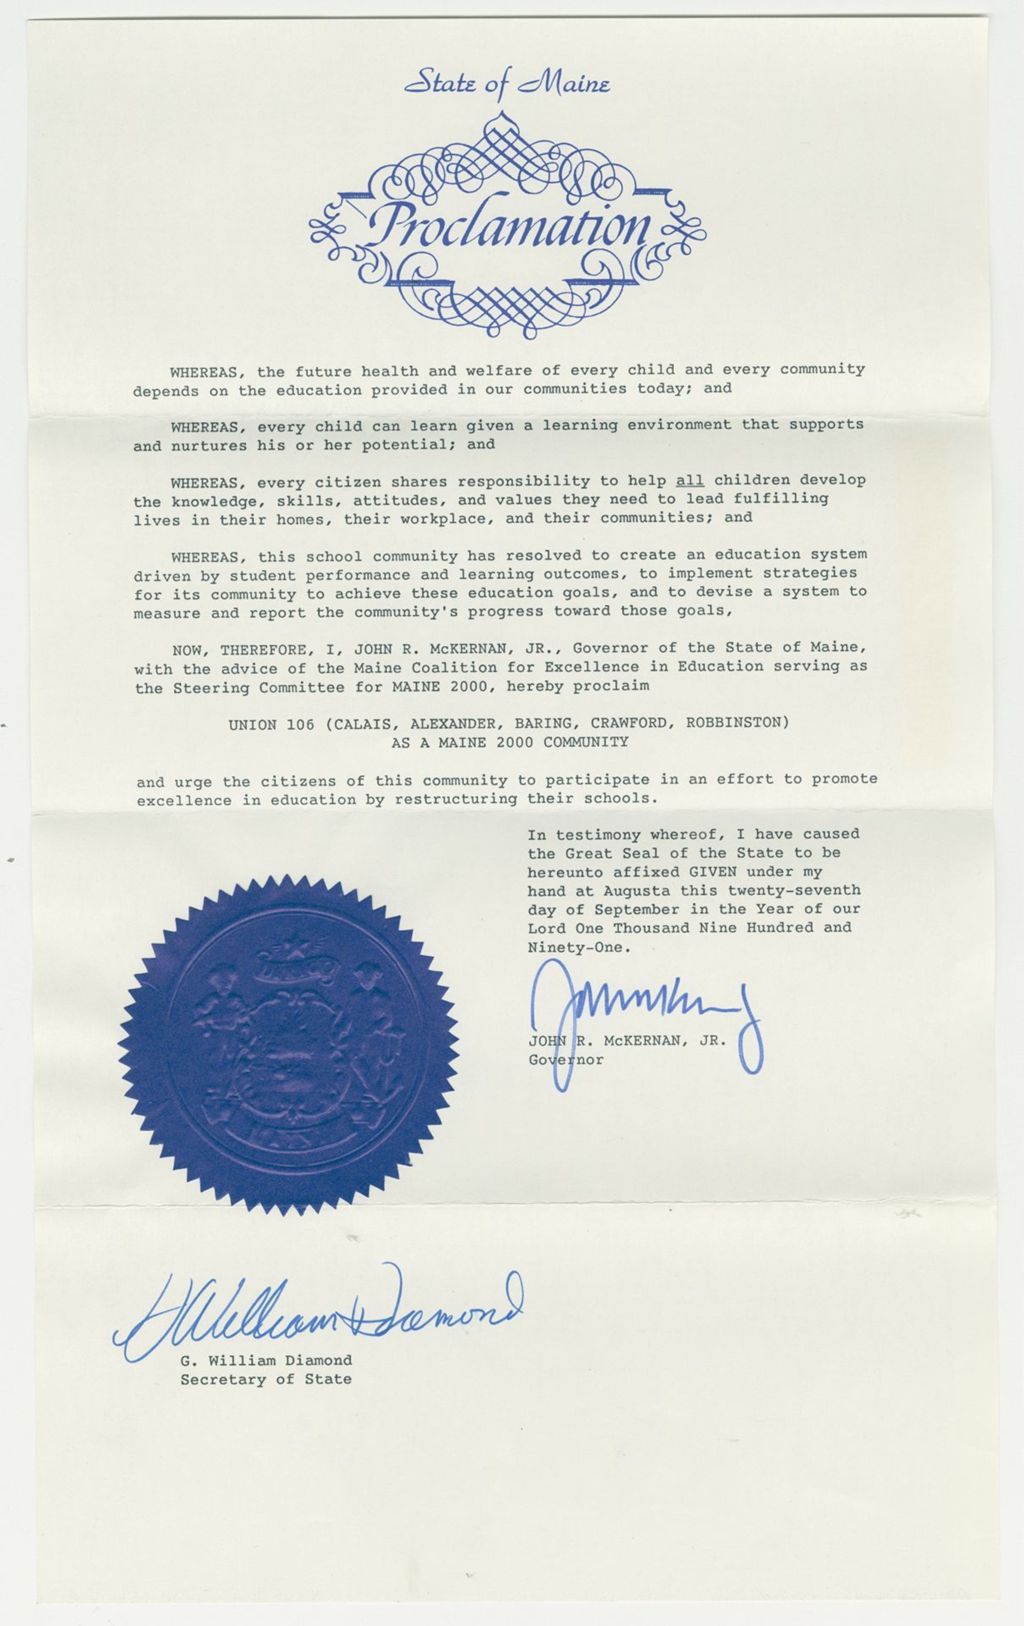 State of Maine
Proclamation
WHEREAS, the future health and welfare of every child and every community
depends on the education provided in our communities today; and
WHEREAS, every child can learn given a learning environment that supports
and nurtures his or her potential; and
WHEREAS, every citizen shares responsibility to help all children develop
the knowledge, skills, attitudes, and values they need to lead fulfilling
lives in their homes, their workplace, and their communities; and
WHEREAS, this school community has resolved to create an education system
driven by student performance and learning outcomes, to implement strategies
for its community to achieve these education goals, and to devise a system to
measure and report the community's progress toward those goals,
NOW, THEREFORE, I, JOHN R. McKERNAN, JR., Governor of the State of Maine,
with the advice of the Maine Coalition for Excellence in Education serving as
the Steering Committee for MAINE 2000, hereby proclaim
UNION 106 (CALAIS, ALEXANDER, BARING, CRAWFORD, ROBBINSTON)
AS A MAINE 2000 COMMUNITY
and urge the citizens of this community to participate in an effort to promote
excellence in education by restructuring their schools.
In testimony whereof, I have caused
the Great Seal of the State to be
hereunto affixed GIVEN under my
hand at Augusta this twenty-seventh
day of September in the Year of our
Lord One Thousand Nine Hundred and
Ninety-One.
JOHN R. McKERNAN, JR.
Governor
G William Diamond
G. William Diamond
Secretary of State